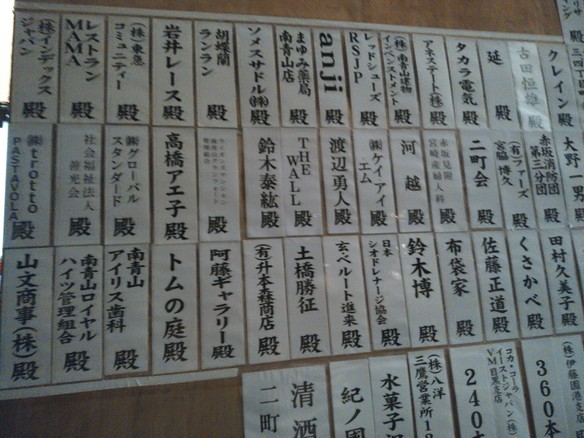 クレイン 殿
吉田恒雄 殿
延 殿
タカラ電気 殿
アネステート㈱ 殿
(株)南青山建物
インベンストメント 殿
レッドシューズ
RSJP 殿
anji 殿
まゆみ薬局
南青山店 殿
ソメスサドル(株) 殿
胡蝶蘭
ランラン 殿
岩井レース 殿
(株)東急
コミュニティー 殿
レストラン
MAMA 殿
(株)インデックス
ジャパン 殿
大野一男 殿
赤坂消防団
第三分団 殿
(有)ファーズ
宮脇 博久 殿
二町会 殿
赤坂見附
宮崎産婦人科 殿
河越 殿
㈱ケイアイ
エム 殿
渡辺勇人 殿
THE
WALL 殿
鈴木泰紘 殿
殿
高橋アエ子 殿
㈱グローバル
スタンダード 殿
社会福祉法人
善光会 殿
㈱trotto
PASTAVOLA 殿
田村久美子 殿
くさかべ 殿
佐藤正道 殿
布袋家 殿
鈴木博 殿
日本
シオドレナージ協会 殿
玄・ベルート進来 殿
土橋勝征 殿
(有)升本森商店 殿
阿藤ギャラリー 殿
トムの庭 殿
南青山
アイリス歯科 殿
南青山ロイヤル
ハイツ管理組合 殿
山文商事(株) 殿
(株)伊藤園港支
360本
コカ・コーラ
イーストジャパン(株)
VM目黒支店
240本
(株)八洋
三鷹営業所
水菓子
紀ノ国
清酒
二町